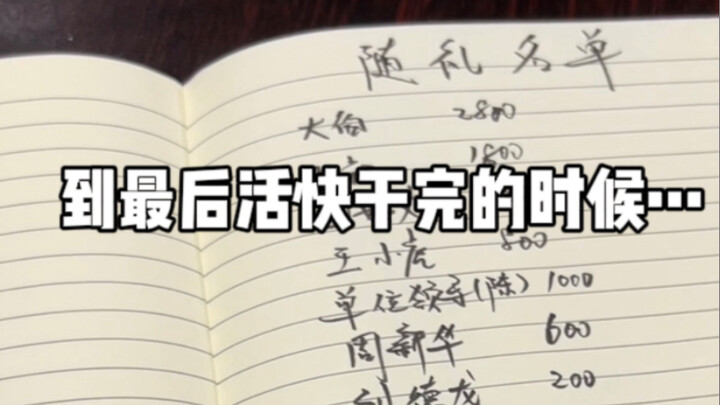 随礼名单
大伯 2800
1800
到最后活快干完的时候…
王小虎 800
单位领导(陈) 1000
周新华 600
刘德龙 200